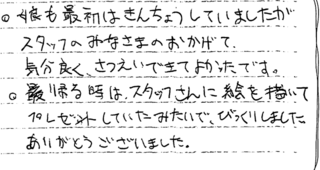 ○ 娘も最初はきんちょうしていましたが
スタッフのみなさまのおかげで、
気分良く、さつえいできてよかったです。
○ 最帰る時は、スタッフさんに絵を描いて
プレゼントしていたみたいで、びっくりしました
ありがとうございました。